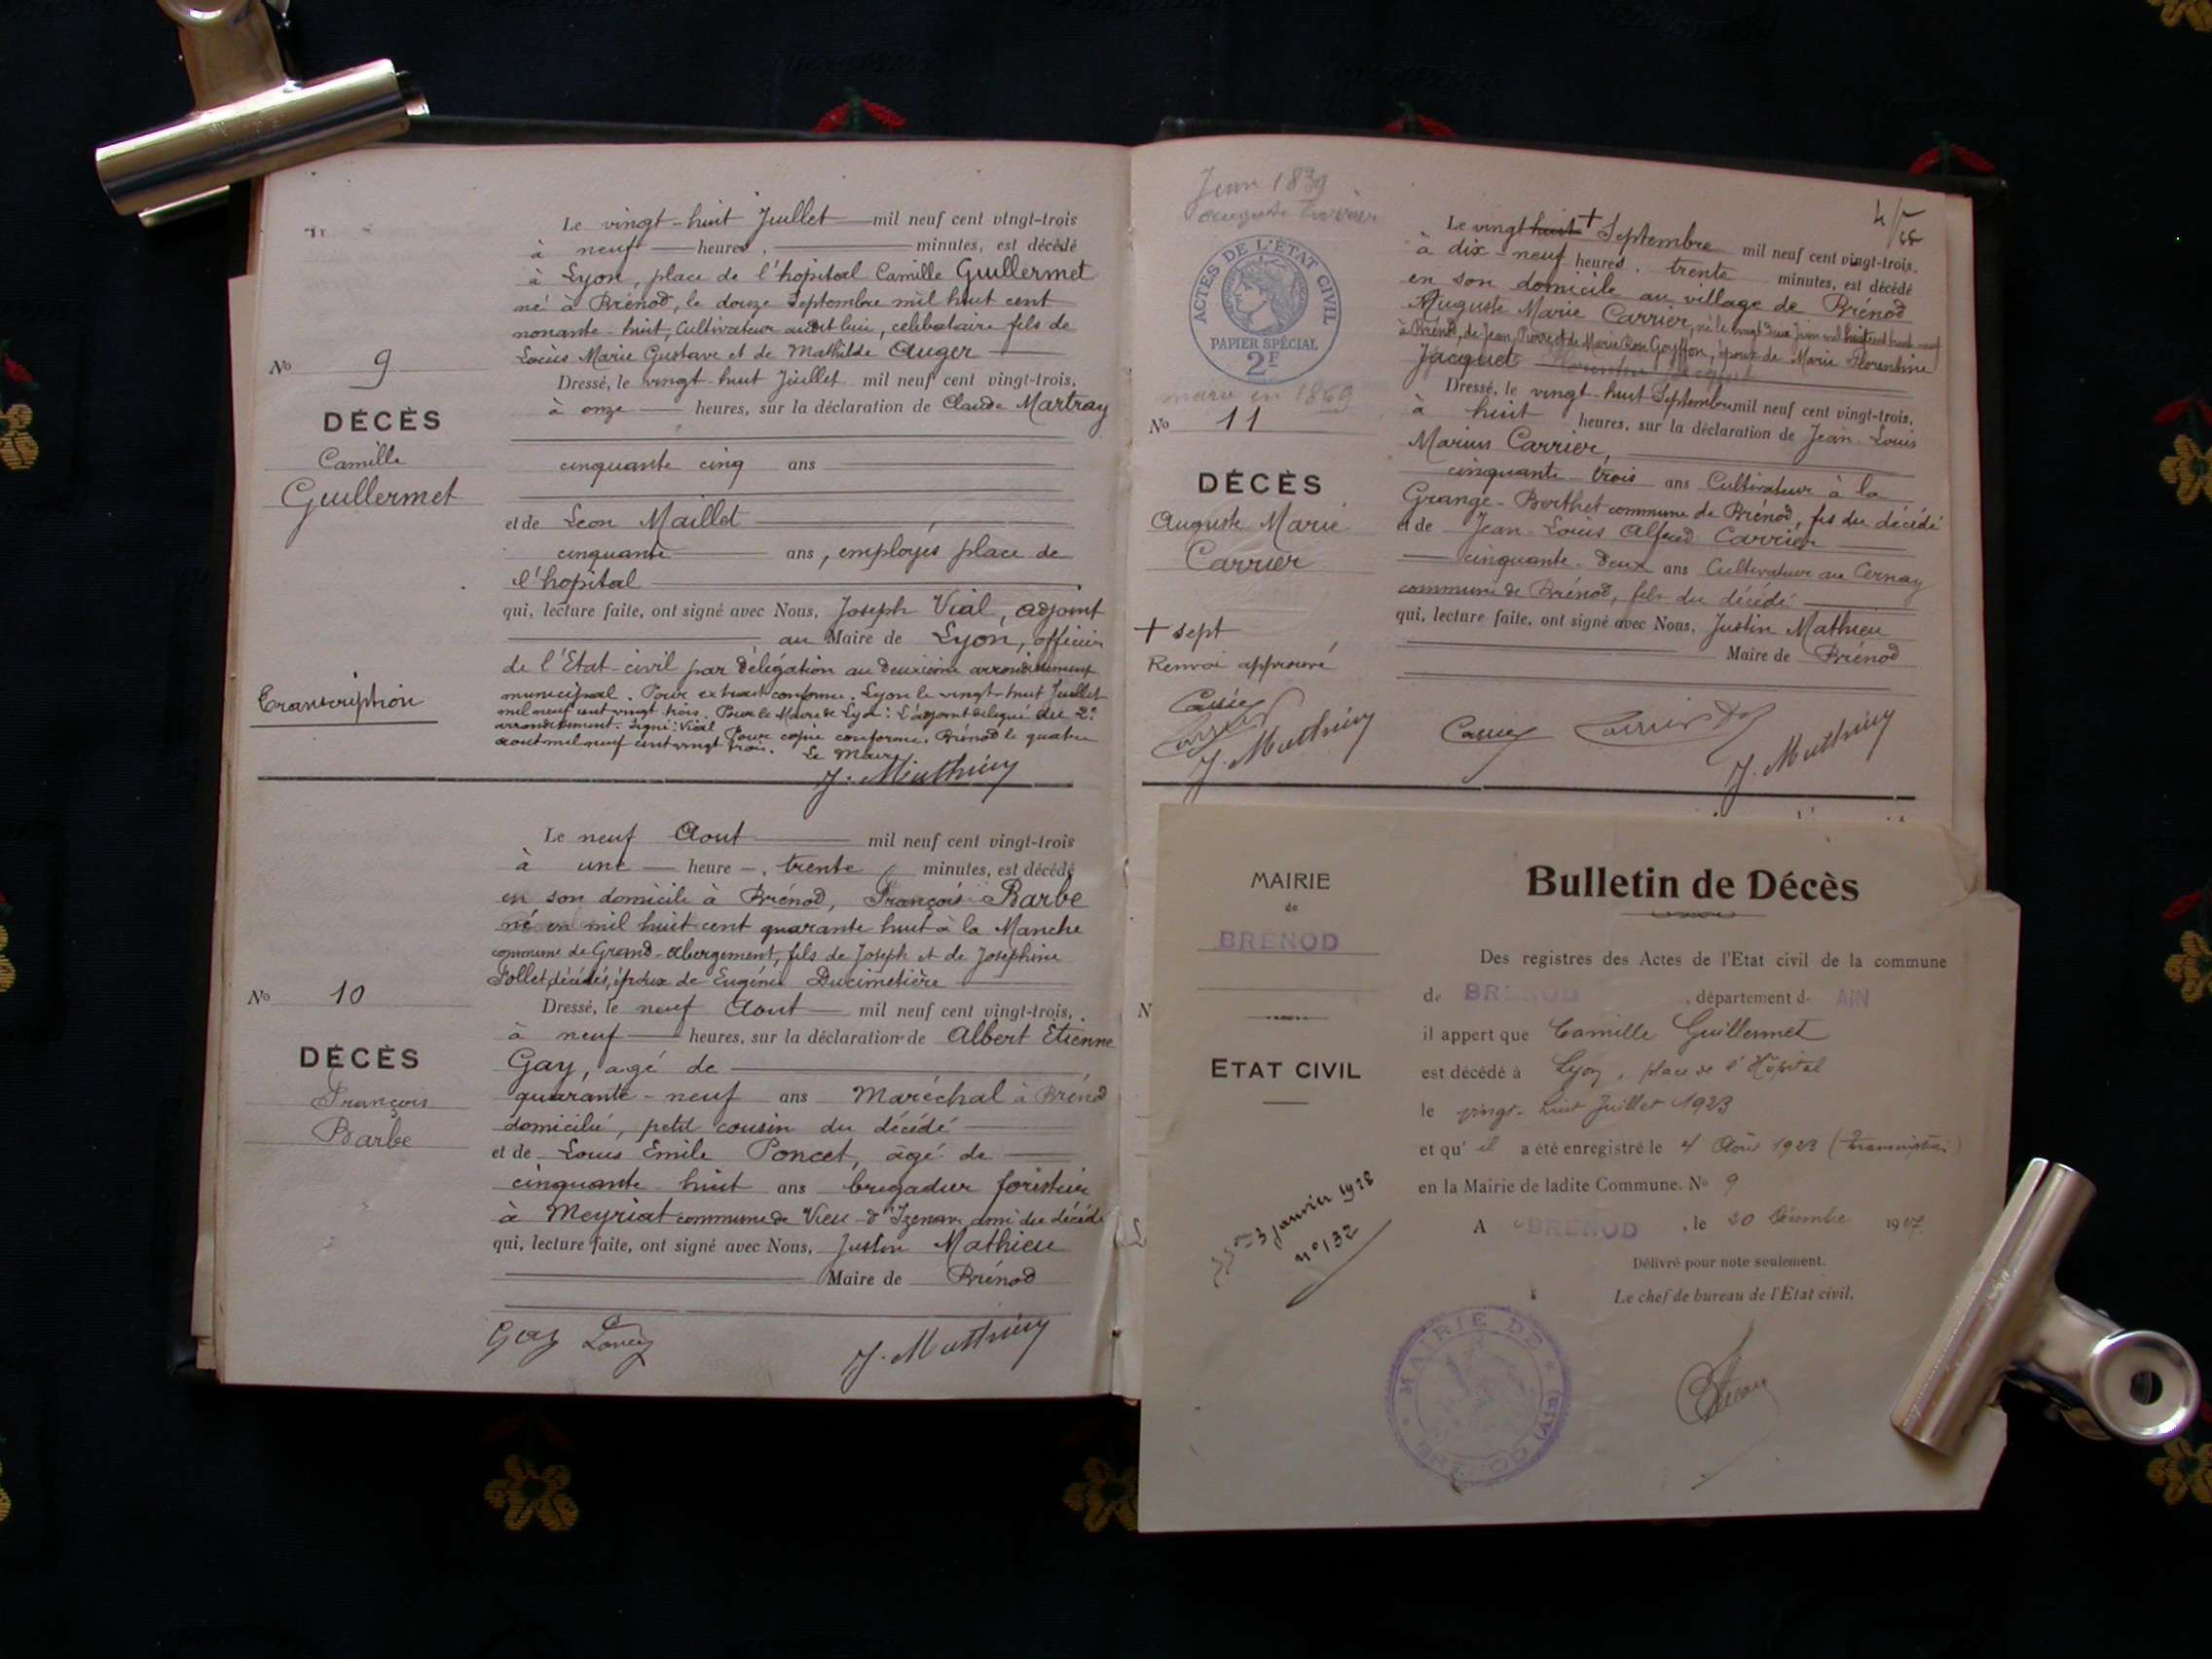 Le vingt-huit Juillet mil neuf cent vingt-trois
à neuf heures, minutes, est décédé
à Lyon, place de l'hopital Camille Guillermet
né à Brénod, le douze Septembre mil huit cent
nonante-huit, Cultivateur audit lieu, célibataire fils de
Louis Marie Gustave et de Mathilde Auger
No 9
DÉCÈS
Camille
Guillermet
Dressé, le vingt-huit Juillet mil neuf cent vingt-trois,
à onze heures, sur la déclaration de Claude Martray
cinquante cinq ans
et de Leon Maillet
cinquante ans, employés place de
l'hopital
qui, lecture faite, ont signé avec Nous, Joseph Vial, adjoint
au Maire de Lyon, officier
de l'Etat-civil par délégation au deuxième arrondissement
Transcription
municipal. Pour extrait conforme. Lyon le vingt-huit Juillet
mil neuf cent vingt trois. Pour le Maire de Lyon: L'adjoint délégué du 2e
arrondissement. Signé: Vial Pour copie conforme. Brénod le quatre
aout mil neuf cent vingt trois. Le Maire
J. Mathieu
Le neuf Aout mil neuf cent vingt-trois
à une heure, trente minutes, est décédé
en son domicile à Brénod, François Barbe
né en mil huit cent quarante huit à la Manche
commune de Grand-Abergement, fils de Joseph et de Joséphine
Follet, décédés, époux de Eugénie Ducimetière
No 10
DÉCÈS
François
Barbe
Dressé, le neuf Aout mil neuf cent vingt-trois,
à neuf heures, sur la déclaration de Albert Etienne
Gay, agé de
quarante-neuf ans Maréchal à Brénod
domicilié, petit cousin du décédé
et de Louis Emile Poncet, âgé de
cinquante huit ans brigadier forestier
à Meyriat commune de Vieu-d'Izenave ami du décédé
qui, lecture faite, ont signé avec Nous, Justin Mathieu
Maire de Brénod
Gay
J. Mathieu
Juin 1839
Auguste Carrier
ACTES DE L'ÉTAT CIVIL
PAPIER SPÉCIAL
2F
marié en 1869
No 11
DÉCÈS
Auguste Marie
Carrier
+ sept
Renvoi approuvé
Carrier
J. Mathieu
Le vingt huit + Septembre mil neuf cent vingt-trois,
à dix-neuf heures, trente minutes, est décédé
en son domicile au village de Brénod
Auguste Marie Carrier, né le vingt deux Juin mil huit cent trente-neuf
à Brénod, de Jean Pierre et de Marie Rose Goyffon, époux de Marie Florentine
Jacquet
Dressé, le vingt-huit Septembre mil neuf cent vingt-trois,
à huit heures, sur la déclaration de Jean-Louis
Marius Carrier,
cinquante-trois ans Cultivateur à la
Grange-Berthet commune de Brénod, fils du décédé
et de Jean-Louis Alfred Carrier
cinquante-deux ans Cultivateur au Cernay
commune de Brénod, fils du décédé
qui, lecture faite, ont signé avec Nous, Justin Mathieu
Maire de Brénod
Carrier Carrier
J. Mathieu
MAIRIE
de
BRENOD
ETAT CIVIL
3 janvier 1928
n° 132
Bulletin de Décès
Des registres des Actes de l'Etat civil de la commune
de BRENOD, département d- AIN
il appert que Camille Guillermet
est décédé à Lyon, place de l'Hôpital
le vingt-huit Juillet 1923
et qu'il a été enregistré le 4 Août 1923 (transcription)
en la Mairie de ladite Commune. No 9
A BRENOD, le 20 Décembre 1927.
Délivré pour note seulement.
Le chef de bureau de l'Etat civil,
MAIRIE DE BRENOD (Ain)